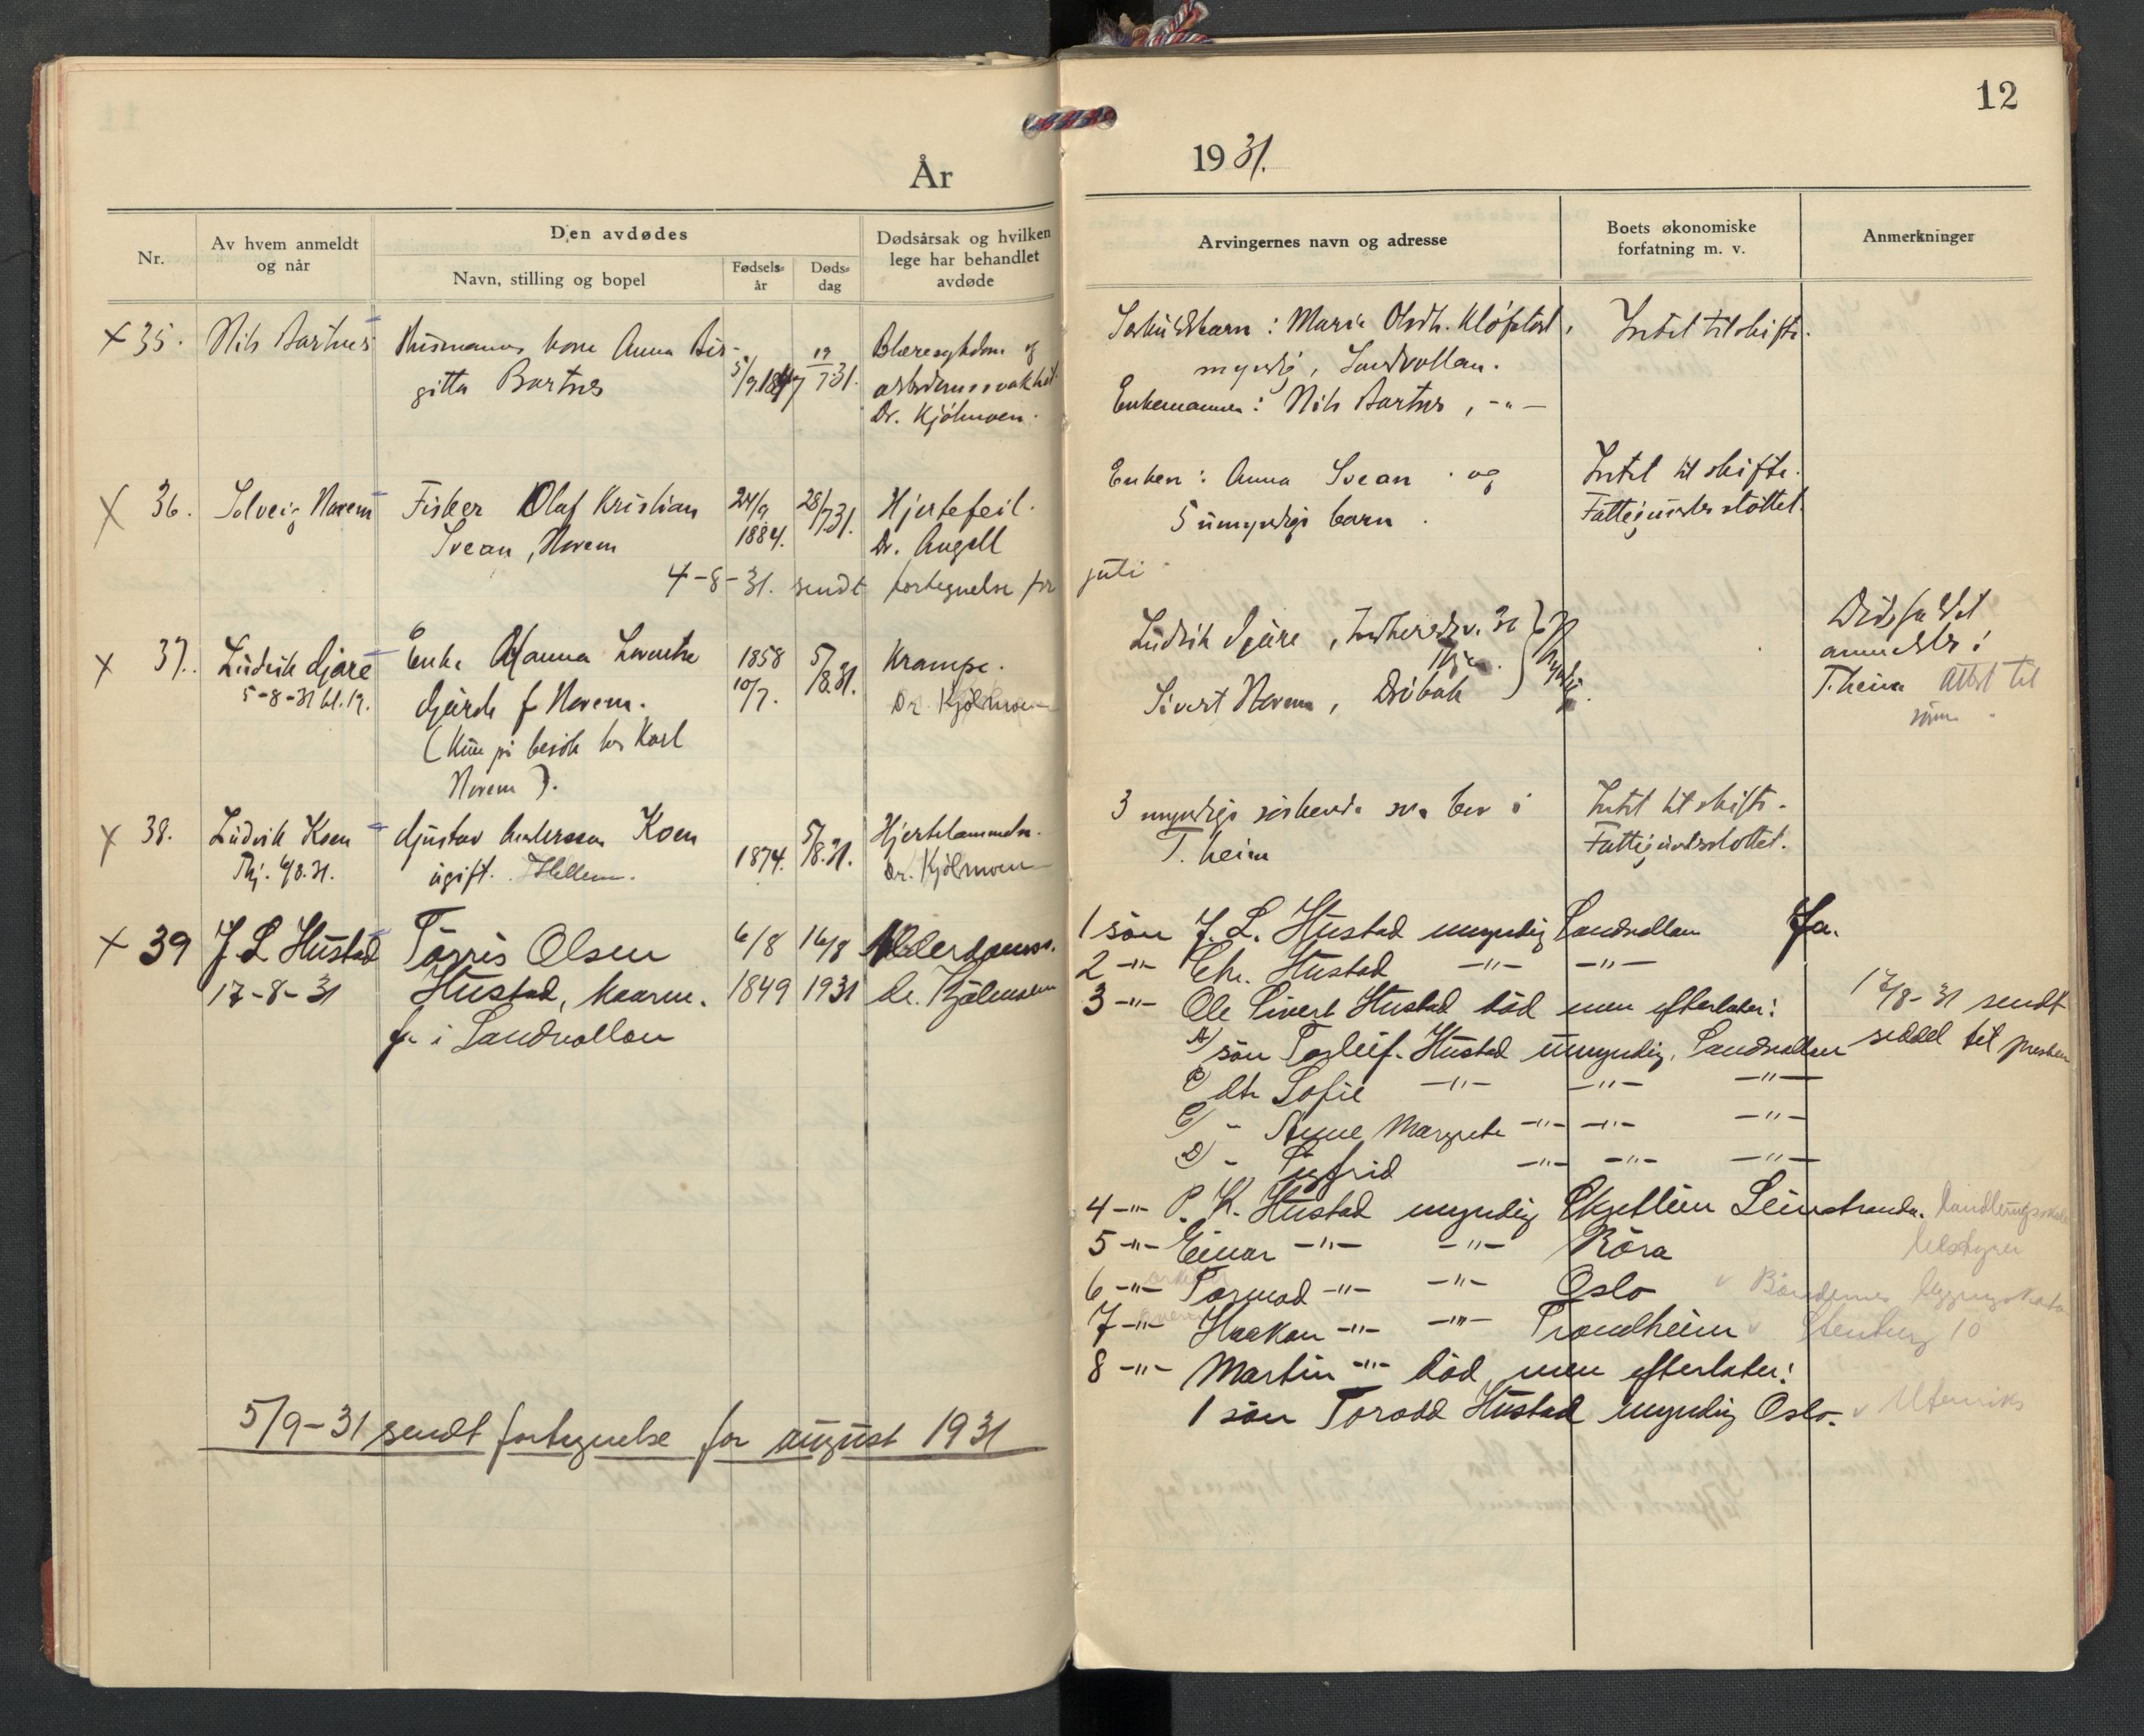 12
År
1931.
Nr.
Av hvem anmeldt
og når
Den avdødes
Navn, stilling og bopel
Fødsels-
år
Døds-
dag
Dødsårsak og hvilken
lege har behandlet
avdøde
Arvingernes navn og adresse
Boets økonomiske
forfatning m. v.
Anmerkninger
x 35. Nils Bartnes
Husmanns kone Anna Bir-
gitta Bartnes
5/9.1847
19/7 31.
Blæresykdom og
alderdomssvakhet.
Dr. Kjölmoen.
Særkuldsbarn: Marie Olsdtr.
myndig, Sandvollan.
Enkemannen: Nils Bartnes, -"-
Intet til skifte.
x 36. Solveig Norem
Fisker Olaf Kristian
Svean, Norem
24/9
1884.
28/7 31.
Hjertefeil.
Dr. Angell
Enken: Anna Svean og
5 umyndige barn.
Intet til skifte.
Fattigunderstöttet.
4-8-31. sendt fortegnelse for
juli
x 37. Ludvik Gjære
5-8-31 kl. 12.
Enke Hanna Lorentse
Gjære f. Norem.
(Kun på besök hos Karl
Norem).
1858
10/7.
5/8.31.
Krampe.
Dr. Kjölmoen
Ludvik Gjære,
Sivert Norem, Dröbak
Dödsfaldet
anmeldes i
T.heim Attst til
x 38. Ludvik Koen
Thj. 6/8.31.
Gustav Andersson Koen
ugift. Hellem.
1874.
5/8.31.
Hjertelammelse.
Dr. Kjölmoen
3 myndige söskende som bor i
T.heim
Intet til skifte.
Fattigunderstöttet.
x 39 J. L Hustad
17-8-31
Torris Olsen
Hustad, kaarm.
fr. i Sandvollan
6/8
1849
16/8
1931
Alderdomss.
Dr. Kjölmoen
1 sön J. L. Hustad myndig Sandvollan
Ja.
2 -"- Chr. Hustad -"- -"-
3 -"- Ole Sivert Hustad död men efterlater:
17/8-31 sendt
seddel til presten
A) sön Torleif Hustad umyndig, Sandvollan
B) dtr Sofie -"- -"- -"-
C) - Anne Margrete -"- -"- -"-
D) - Sigfrid -"- -"- -"-
4 -"- P. K. Hustad myndig Skjetlein Leinstranda.
5 -"- Einar -"- -"- Röra
6 -"- Tormod -"- -"- Oslo
v Böndernes
7 -"- Haakon -"- -"- Trondheim
v Stenberg 10
8 -"- Martin -"- död, men efterlater:
1 sön Torodd Hustad myndig Oslo.
v Utenriks
5/9-31 sendt fortegnelse for august 1931